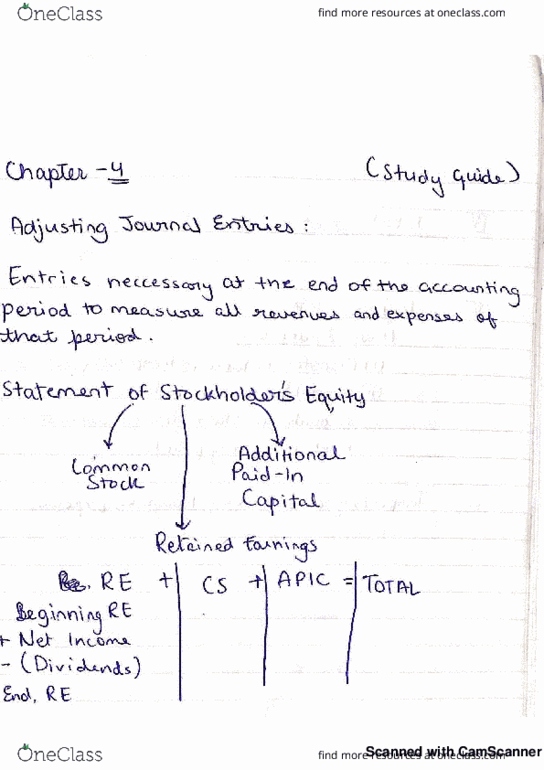 OneClass
find more resources at oneclass.com
Chapter - 4
(Study Guide)
Adjusting Journal Entries :
Entries neccessary at the end of the accounting
period to measure all revenues and expenses of
that period.
Statement of Stockholder's Equity
Common
Stock
Additional
Paid-In
Capital
Retained Earnings
RE + CS + APIC = TOTAL
Beginning RE
+ Net Income
- (Dividends)
End, RE
OneClass
find more resources at oneclass.com
Scanned with CamScanner